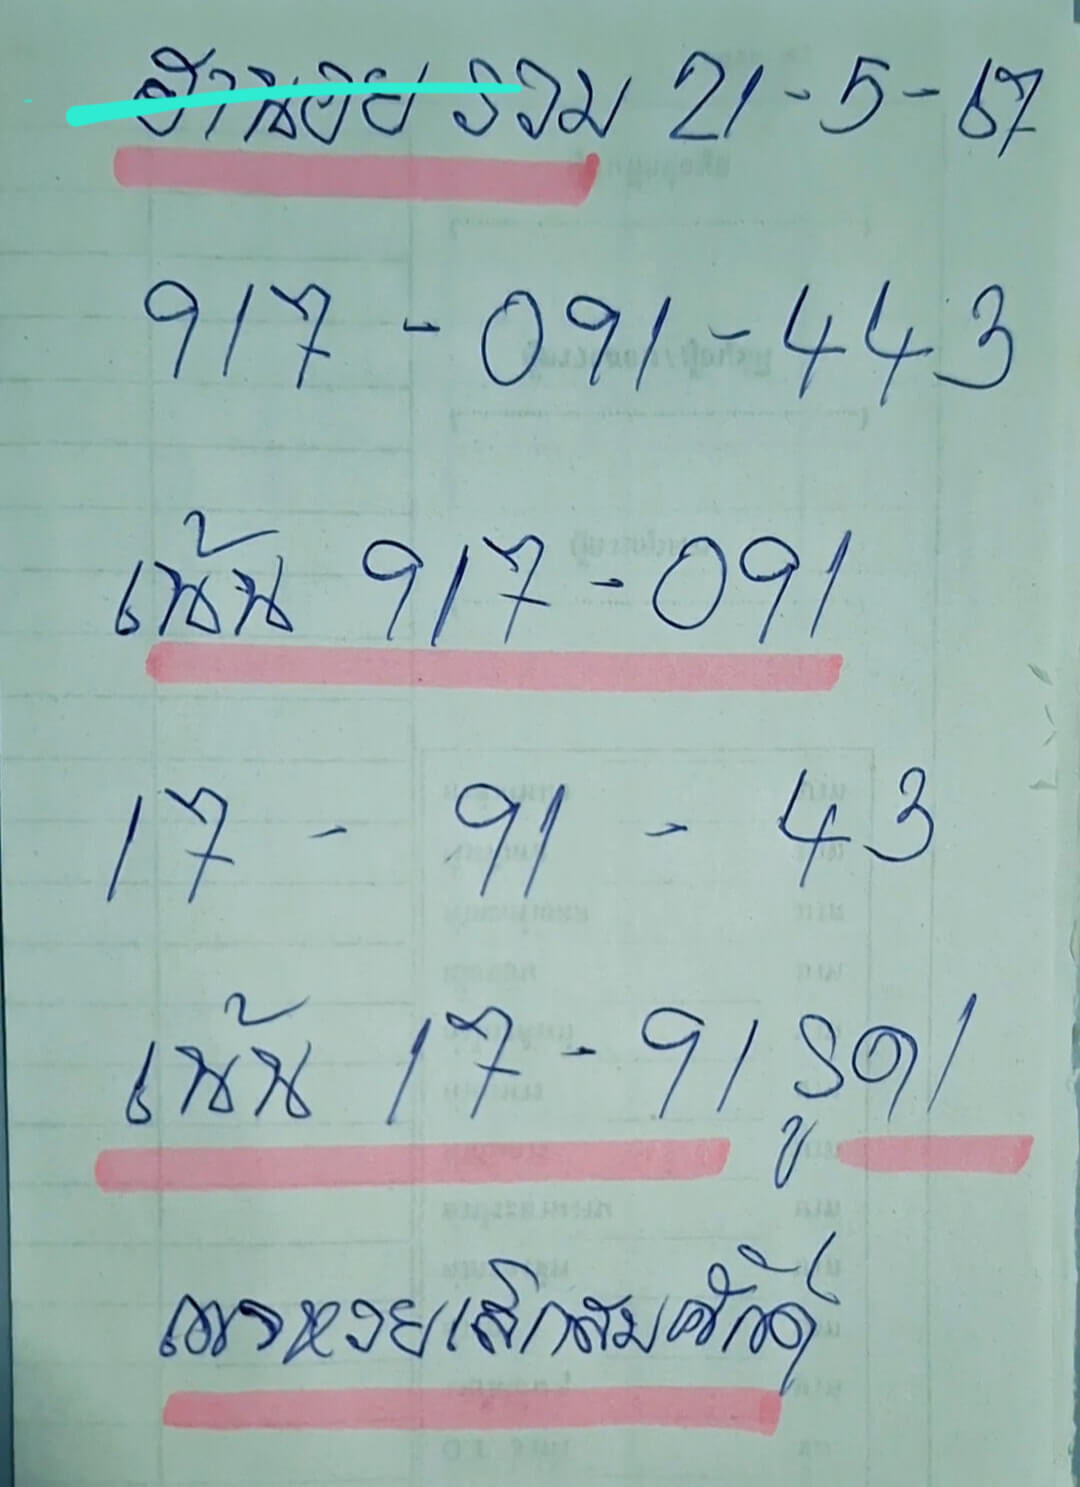 ฮานอย รวม 21-5-67
917 - 091 - 443
เน้น 917 - 091
17 - 91 - 43
เน้น 17 - 91 รูด 1
หวยเล็กสมศักดิ์